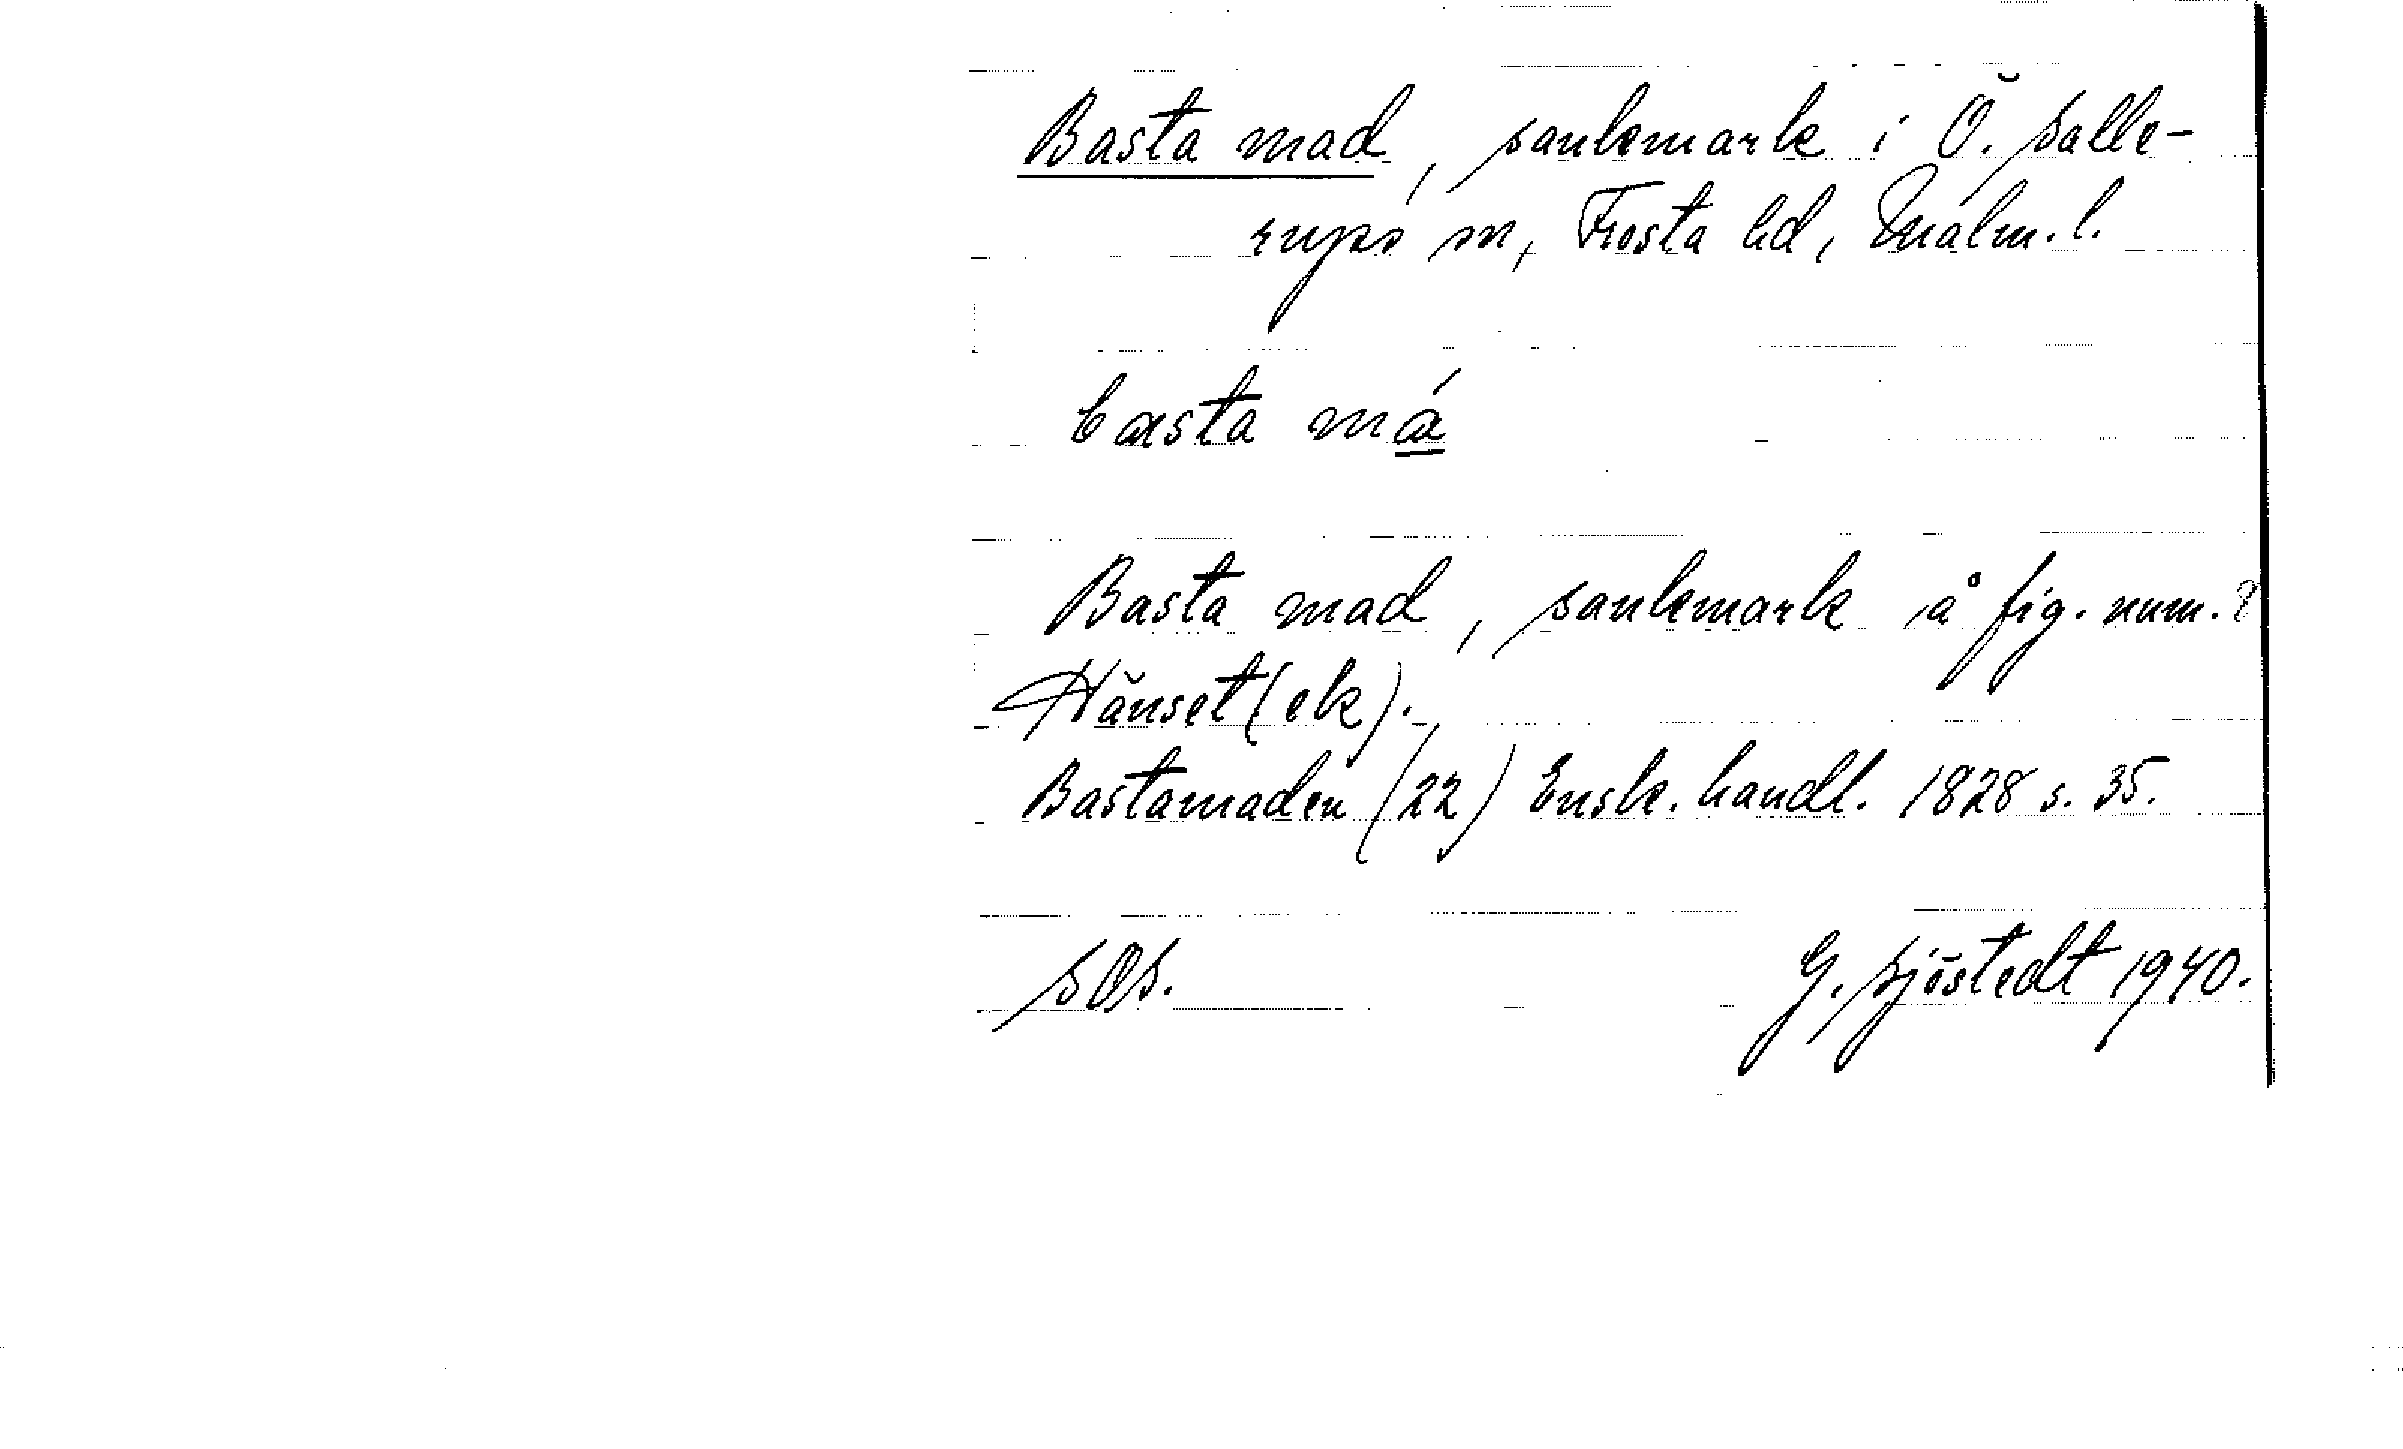 Basta mad, sankmark i Ö. Salle-
rups sn, Frosta hd, Malm. l.
basta má
Basta mad, sankmark å fig. num. 8
Hänset (ek).
Bastamaden (22) Ensk. handl. 1828 s. 35.
SOS. G. Sjöstedt 1940.